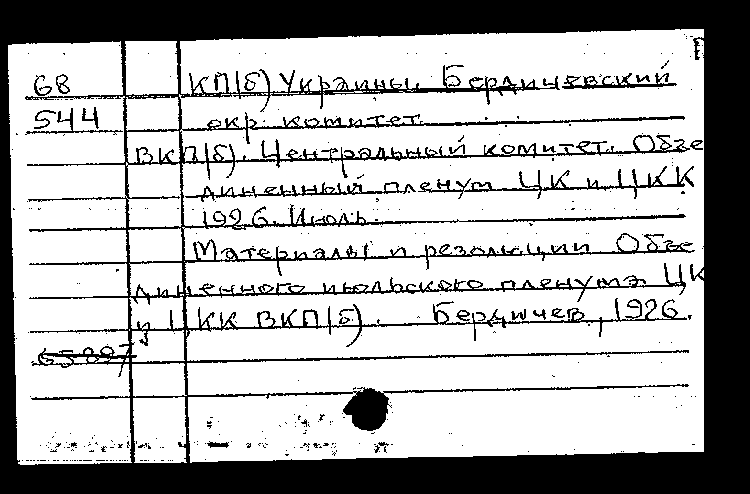 68 КП(б) Украины. Бердичевский
544 окр. комитет.
ВКП(б). Центральный комитет. Объе
диненный пленум ЦК и ЦКК
1926. Июль.
Материалы и резолюции Объе
диненного июльского пленума ЦК
и ЦКК ВКП(б). Бердичев, 1926.
65897